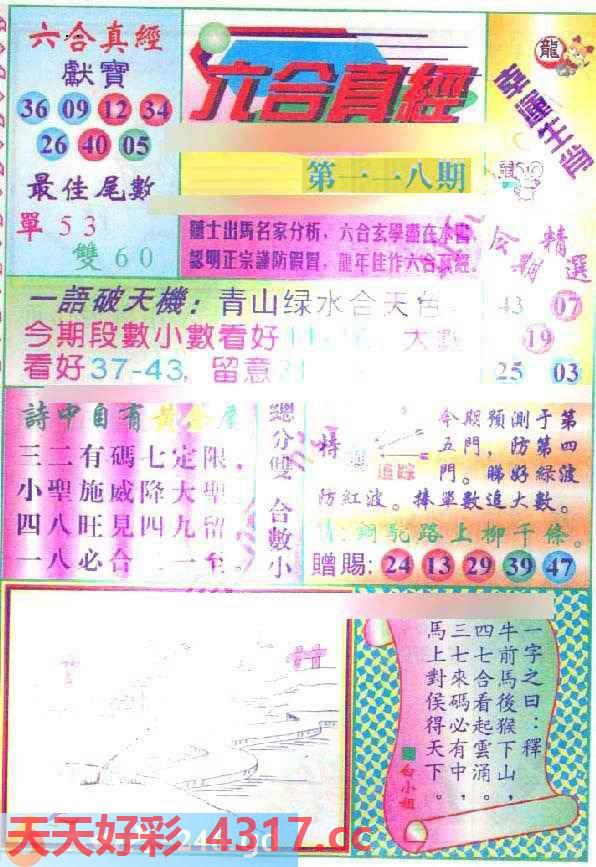 六合真經
獻寶
36 09 12 34
26 40 05
最佳尾數
單 5 3
雙 6 0
六合真經
第一一八期
龍
幸運生肖
鼠
隨士出馬名家分析，六合玄學盡在本書
認明正宗謹防假冒，龍年佳作六合真經.
精選
43 07
19
25 03
一語破天機：青山绿水合天色
今期段數小數看好
大數
看好37-43，留意
詩中自有黃金屋
三二有碼七定限，
小聖施威降大聖
四八旺見四九留
一八必合二一至。
總分雙
合數小
特
追踪
今期預測于第
五門，防第四
門。睇好綠波
防紅波。捧單數追大數。
銅駝路上柳千條。
贈賜：24 13 29 39 47
一字之曰：釋
牛前馬後猴下山，
四七合看起雲涌。
三七來碼必有中，
馬上對侯得天下。
白小姐
天天好彩 4317.cc